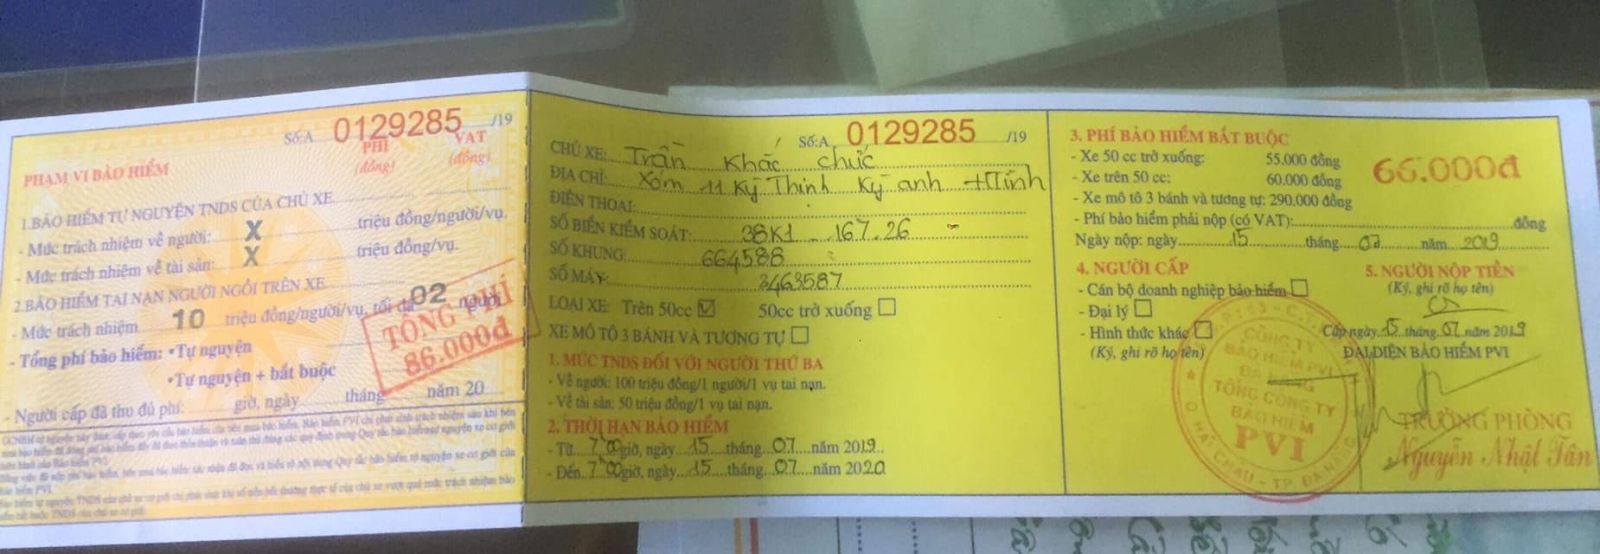 Số:A 0129285 /19
PHẠM VI BẢO HIỂM
PHÍ (đồng)
VAT (đồng)
1.BẢO HIỂM TỰ NGUYỆN TNDS CỦA CHỦ XE
- Mức trách nhiệm về người: X triệu đồng/người/vụ.
- Mức trách nhiệm về tài sản: X triệu đồng/vụ.
2.BẢO HIỂM TAI NẠN NGƯỜI NGỒI TRÊN XE
- Mức trách nhiệm 10 triệu đồng/người/vụ, tối đa 02 người
- Tổng phí bảo hiểm: •Tự nguyện
•Tự nguyện + bắt buộc
TỔNG PHÍ
86.000đ
- Người cấp đã thu đủ phí: giờ, ngày tháng năm 20
Số:A 0129285 /19
CHỦ XE: Trần Khắc Chức
ĐỊA CHỈ: Xóm 11 Kỳ Thịnh Kỳ anh HTĩnh
ĐIỆN THOẠI:
SỐ BIỂN KIỂM SOÁT: 38K1 - 167.26
SỐ KHUNG: 664588
SỐ MÁY: 3463587
LOẠI XE: Trên 50cc ☑ 50cc trở xuống ☐
XE MÔ TÔ 3 BÁNH VÀ TƯƠNG TỰ ☐
1. MỨC TNDS ĐỐI VỚI NGƯỜI THỨ BA
- Về người: 100 triệu đồng/1 người/1 vụ tai nạn.
- Về tài sản: 50 triệu đồng/1 vụ tai nạn.
2. THỜI HẠN BẢO HIỂM
- Từ 7h00 giờ, ngày 15 tháng 07 năm 2019
- Đến 7h00 giờ, ngày 15 tháng 07 năm 2020
3. PHÍ BẢO HIỂM BẮT BUỘC
- Xe 50 cc trở xuống: 55.000 đồng
- Xe trên 50 cc: 60.000 đồng
66.000đ
- Xe mô tô 3 bánh và tương tự: 290.000 đồng
- Phí bảo hiểm phải nộp (có VAT): đồng
Ngày nộp: ngày 15 tháng 07 năm 2019
4. NGƯỜI CẤP
- Cán bộ doanh nghiệp bảo hiểm ☐
- Đại lý ☐
- Hình thức khác ☐
(Ký, ghi rõ họ tên)
5. NGƯỜI NỘP TIỀN
(Ký, ghi rõ họ tên)
Cấp ngày 15 tháng 07 năm 2019
ĐẠI DIỆN BẢO HIỂM PVI
CÔNG TY
BẢO HIỂM PVI
ĐÀ NẴNG
TỔNG CÔNG TY
BẢO HIỂM
PVI
Q. HẢI CHÂU - TP. ĐÀ NẴNG
TRƯỞNG PHÒNG
Nguyễn Nhật Tân